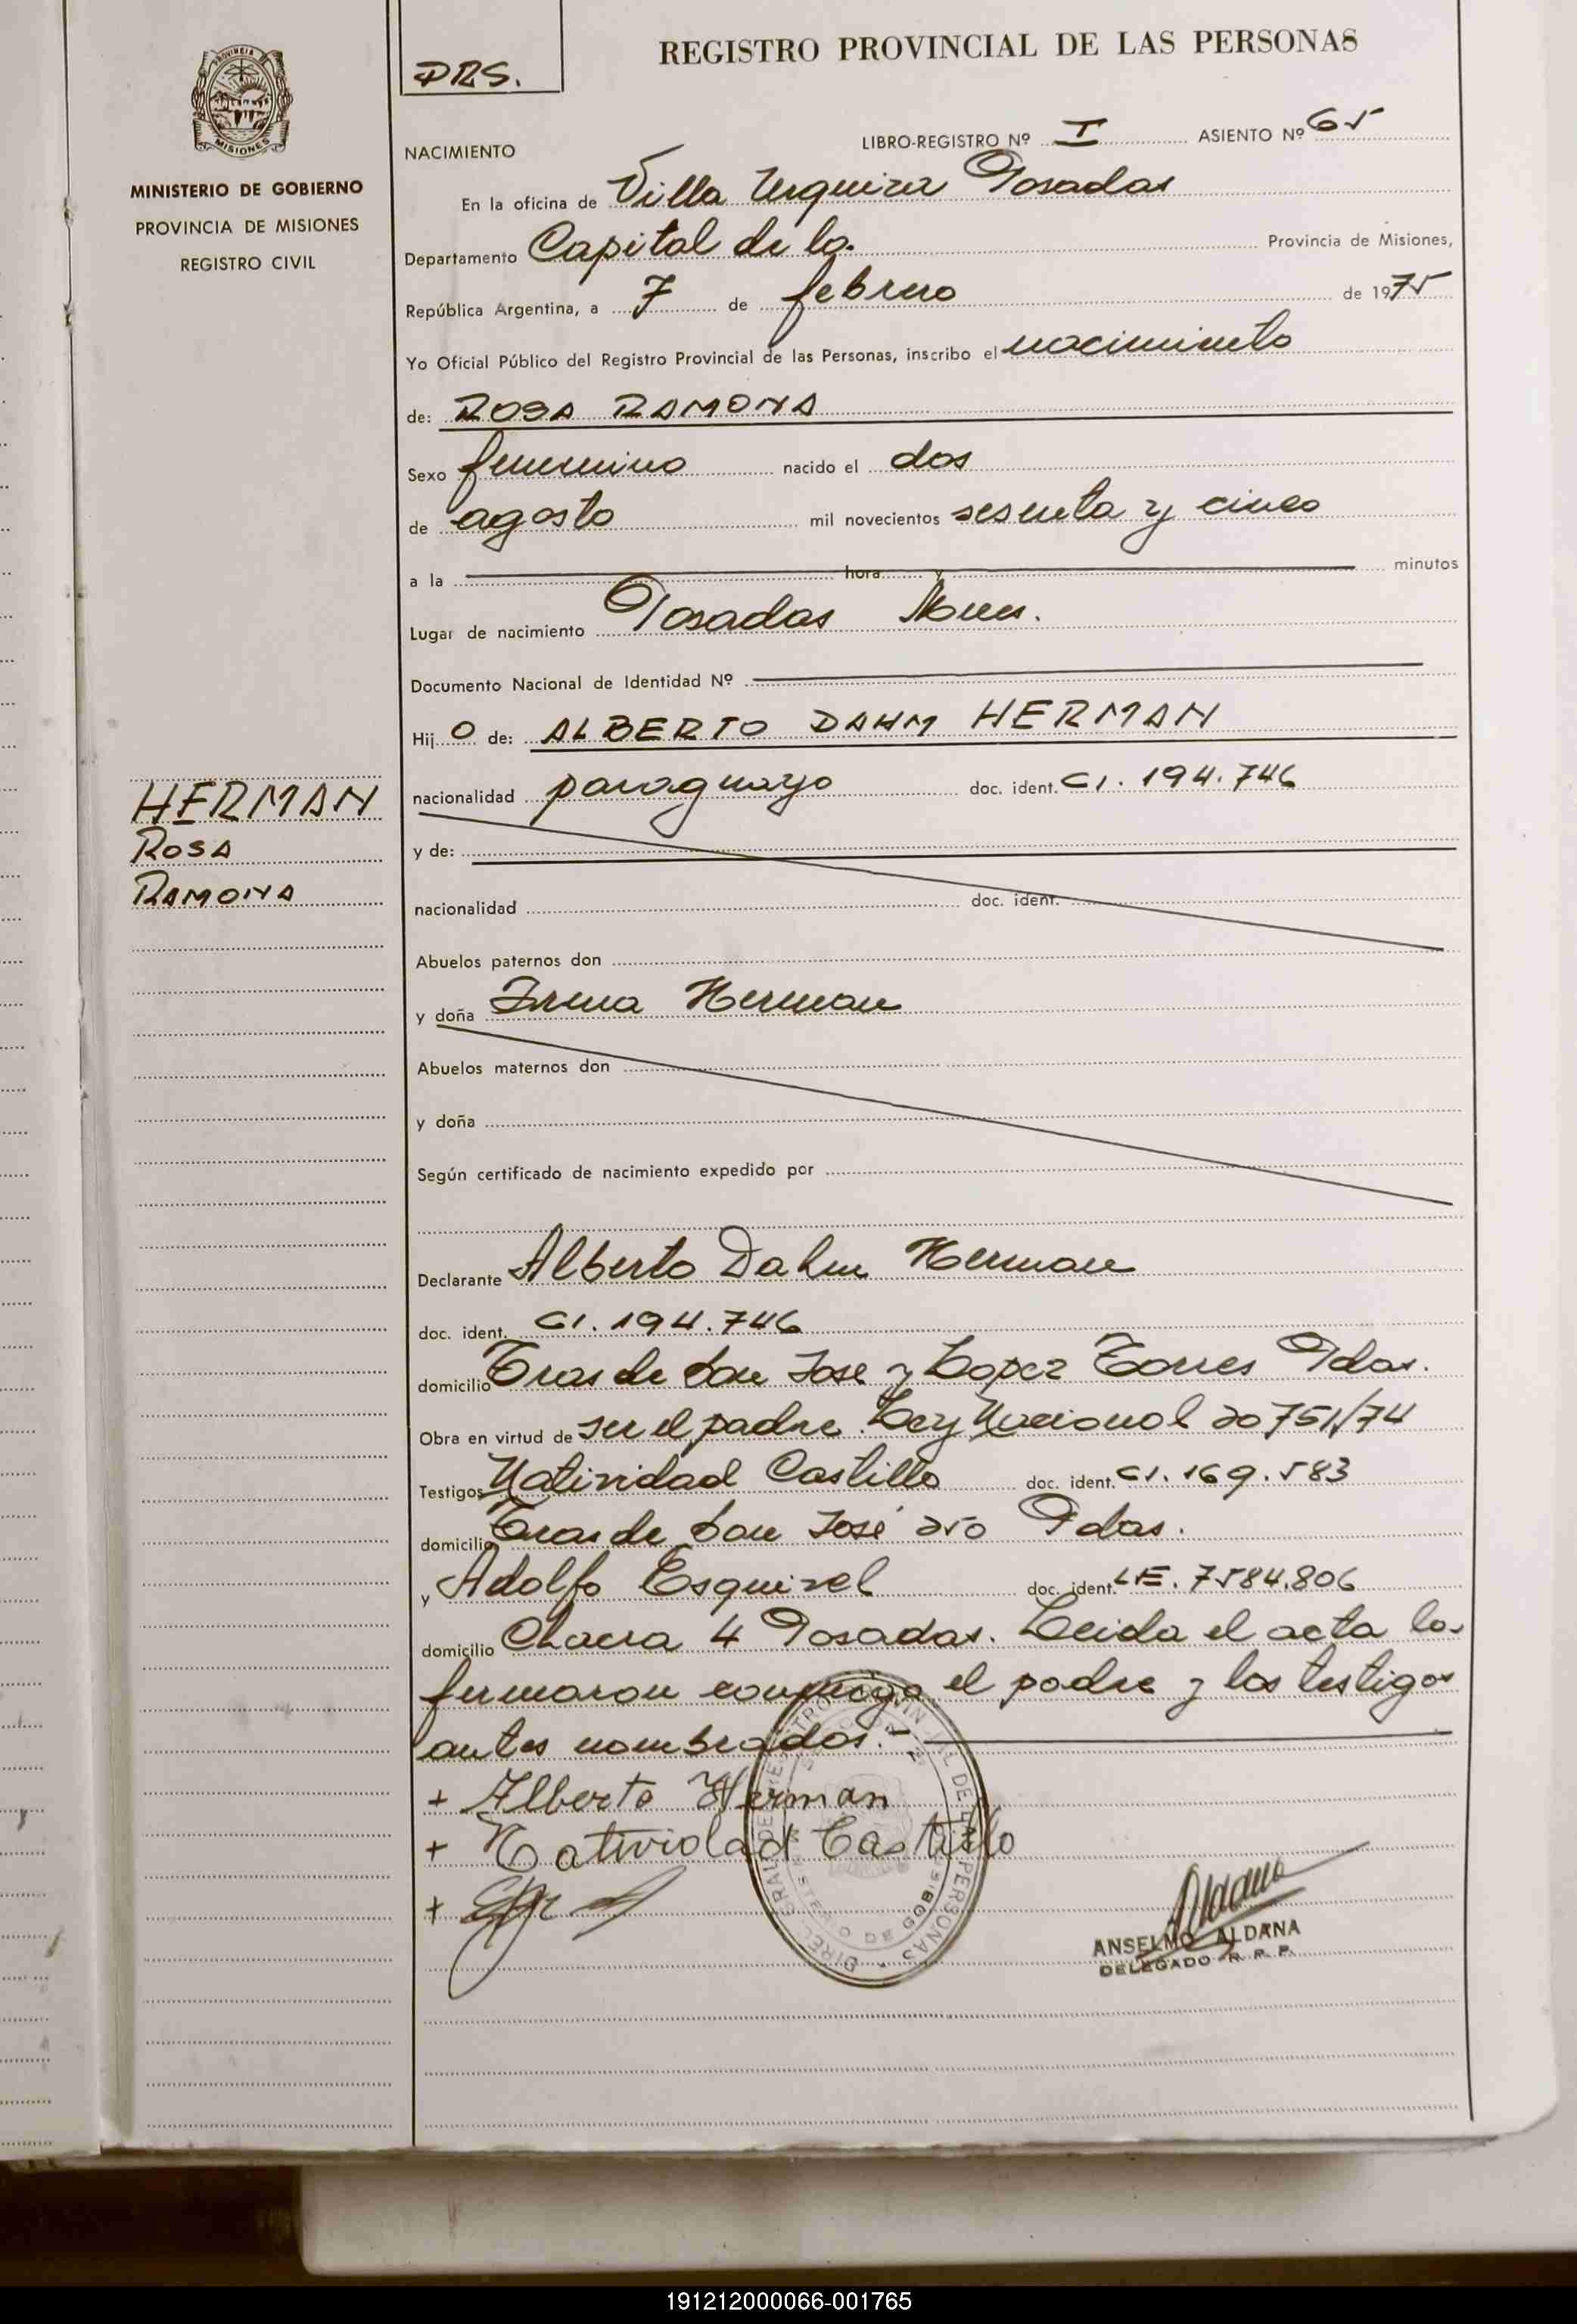 PRS.
REGISTRO PROVINCIAL DE LAS PERSONAS
MISIONES
MINISTERIO DE GOBIERNO
PROVINCIA DE MISIONES
REGISTRO CIVIL
NACIMIENTO
LIBRO-REGISTRO Nº I ASIENTO Nº 65
En la oficina de Villa Urquiza Posadas
Departamento Capital de la Provincia de Misiones,
República Argentina, a 7 de febrero de 1975
Yo Oficial Público del Registro Provincial de las Personas, inscribo el nacimiento
de: ROSA RAMONA
Sexo femenino nacido el dos
de agosto mil novecientos sesenta y cinco
a la hora y minutos
Lugar de nacimiento Posadas Mnes.
Documento Nacional de Identidad Nº
Hij o de: ALBERTO DAHM HERMAN
nacionalidad paraguayo doc. ident. CI. 194.746
HERMAN
ROSA
RAMONA
y de:
nacionalidad doc. ident.
Abuelos paternos don
y doña Irma Herman
Abuelos maternos don
y doña
Según certificado de nacimiento expedido por
Declarante Alberto Dahm Herman
doc. ident. CI. 194.746
domicilio Tras de San Jose y Lopez Torres Pdas.
Obra en virtud de ser el padre. Ley Nacional 20751/74
Testigos Natividad Castillo doc. ident. CI. 169.583
domicilio Tras de San José 250 Pdas.
y Adolfo Esquivel doc. ident. LE. 7584.806
domicilio Chacra 4 Posadas. Leida el acta la
firmaron conmigo el padre y los testigos
antes nombrados.-
+ Alberto Herman
+ Natividad Castillo
+
ANSELMO ALDANA
DELEGADO R. P. P.
191212000066-001765